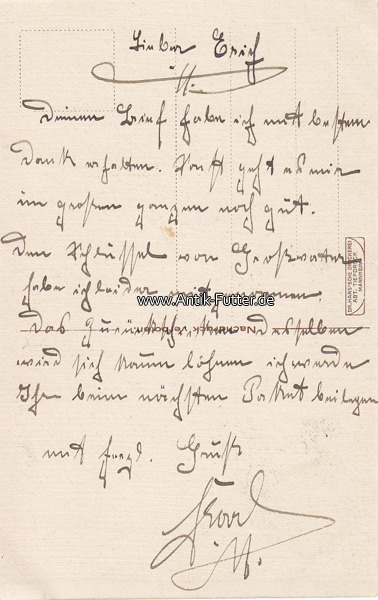 Lieber Erich
Deinen Brief habe ich mit bestem
Dank erhalten. Sonst geht es mir
im großen ganzen noch gut.
Den Schlüssel von Großvater
habe ich leider mitgenommen.
www.Antik-Futter.de
Das zurückschicken desselben
Nachdruck verboten
wird sich kaum löhnen ich werde
Ihn beim nächsten Paket beilegen
mit frdl. Gruß
Karl
DR. HAAS'SCHE DRUCKEREI
ABT. TIEFDRUCK
MANNHEIM